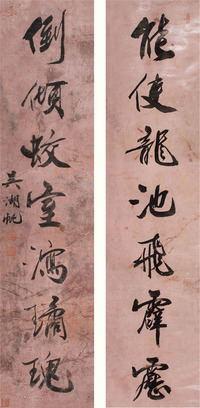 能使龍池飛霹靂
倒傾蛟室瀉璚瑰
吳湖帆